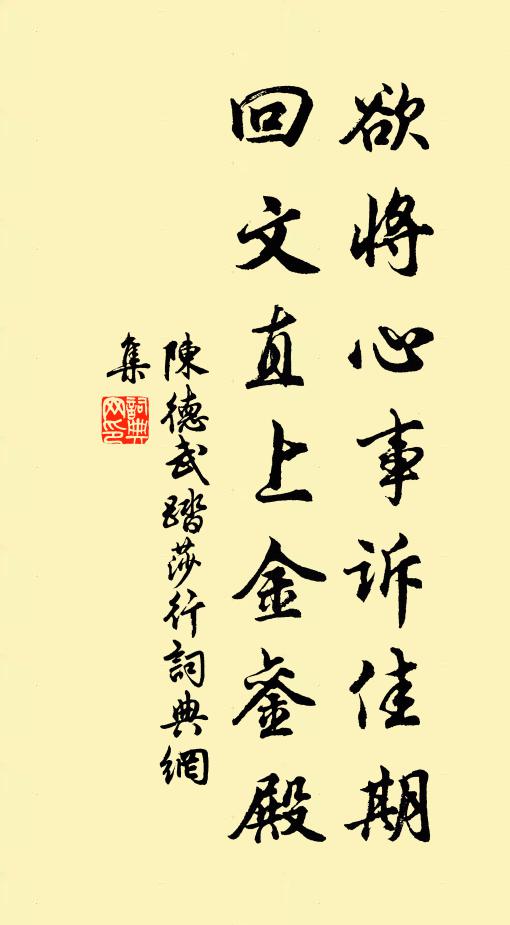 欲将心事诉佳期
回文直上金銮殿
陳德武踏莎行詞典網
集
詞典
网印